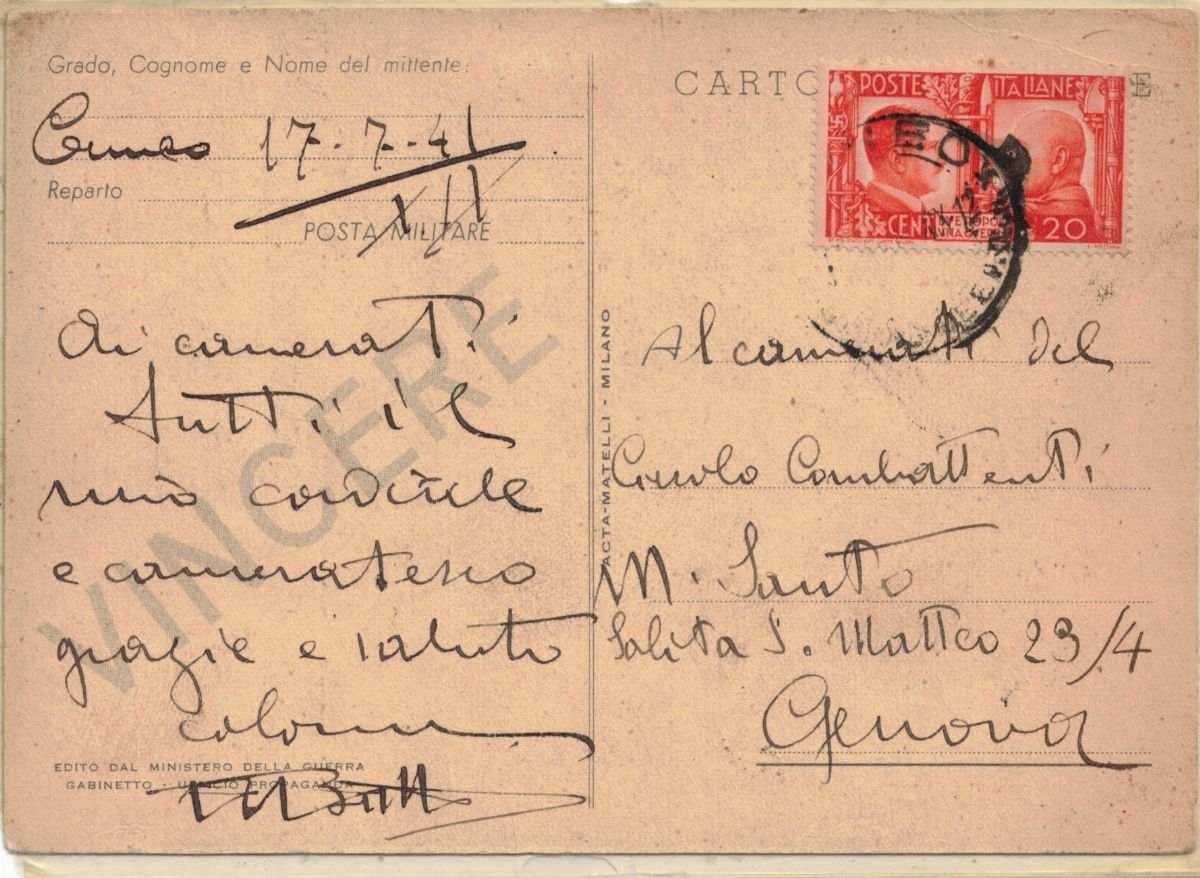 Grado, Cognome e Nome del mittente:
Cuneo 17-7-41
XIX
Reparto
POSTA MILITARE
VINCERE
Ai camerati
tutti il
mio cordiale
e cameratesco
grazie e saluto
EDITO DAL MINISTERO DELLA GUERRA
GABINETTO - UFFICIO PROPAGANDA
ACTA-MATELLI - MILANO
CARTO E
POSTE ITALIANE
CENT 20
Al camerati del
Circolo Combattenti
M. Santo
Salita S. Matteo 23/4
Genova